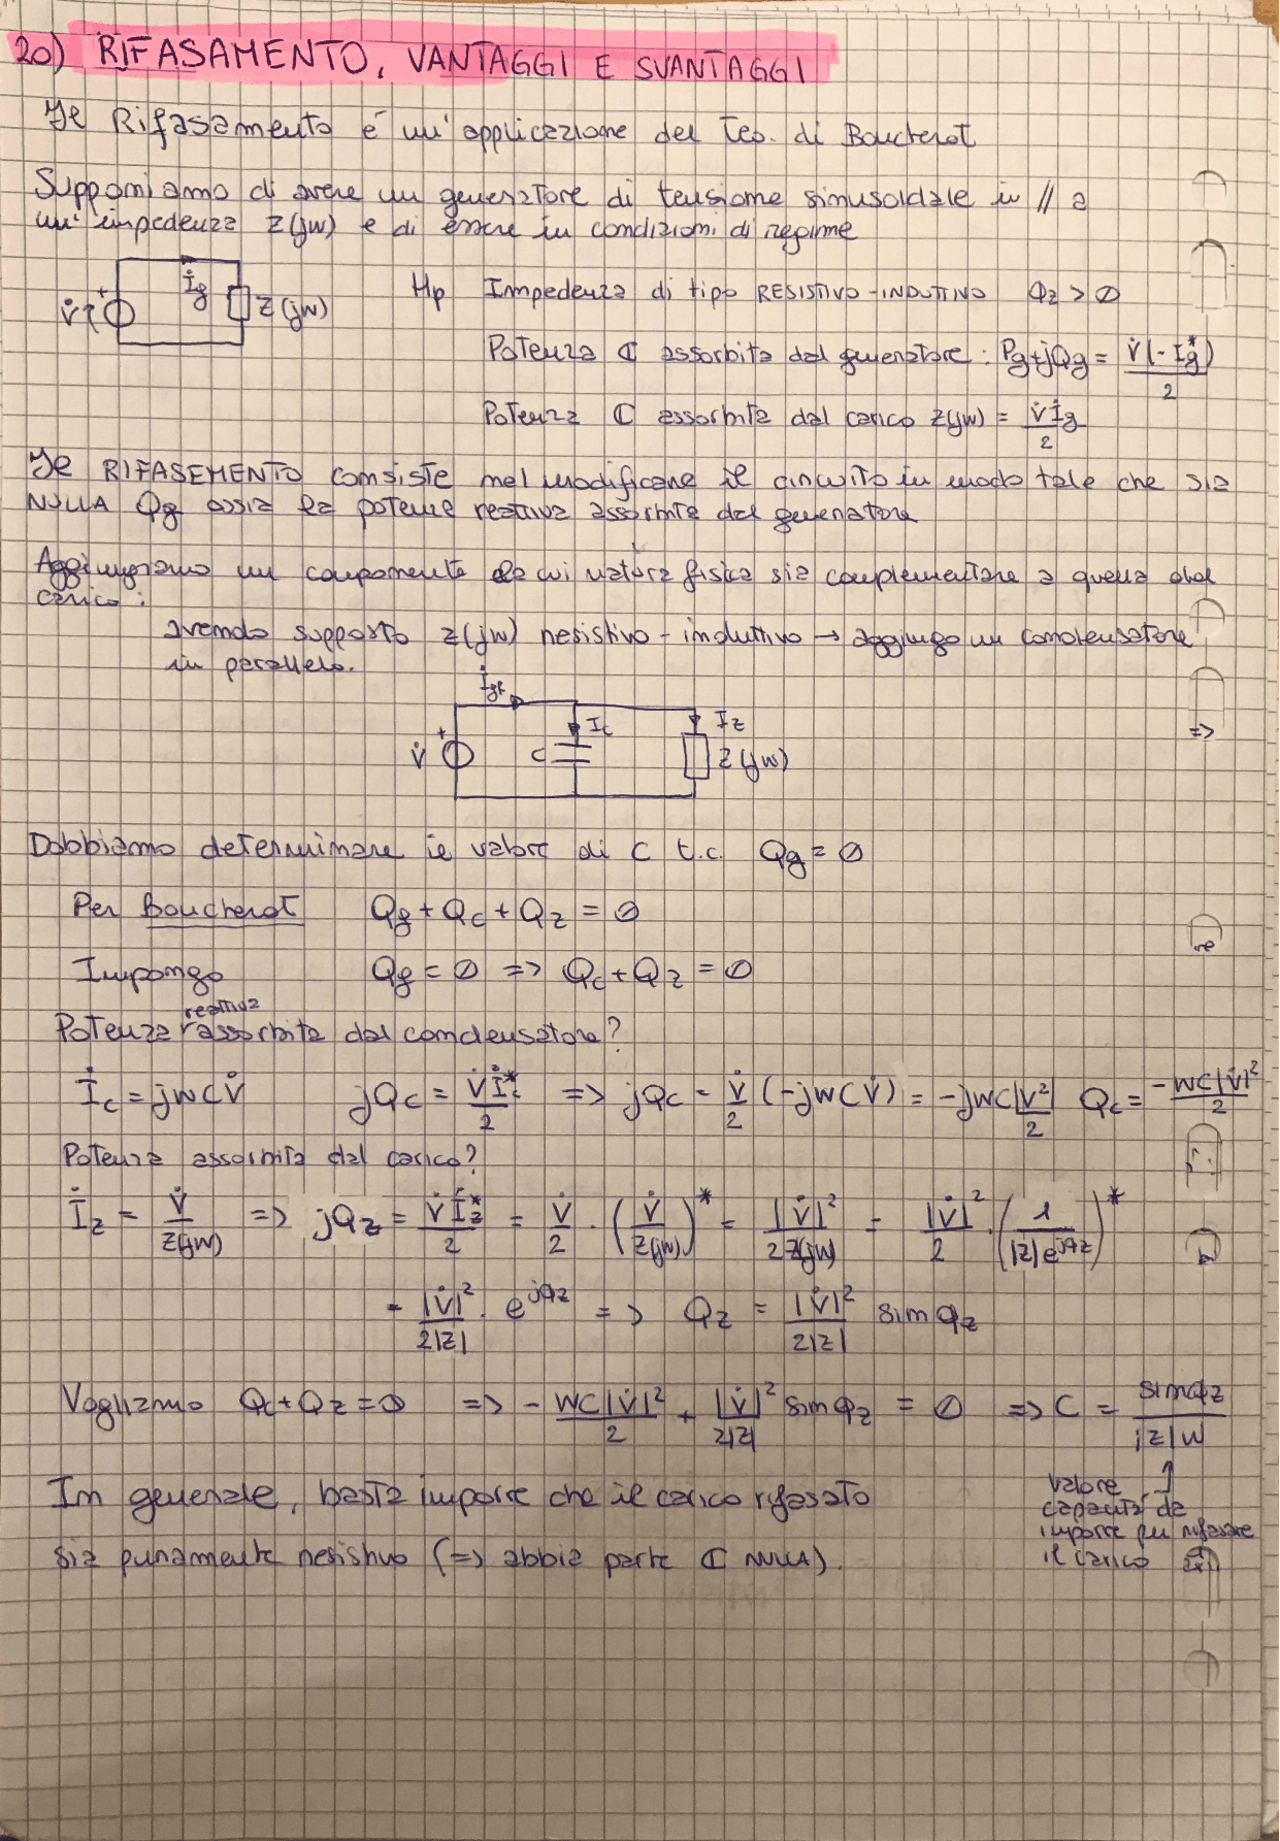 20) RIFASAMENTO, VANTAGGI E SVANTAGGI
Il Rifasamento è un'applicazione del Teo. di Boucherot
Supponiamo di avere un generatore di tensione sinusoidale in // a
un'impedenza Z(jw) e di essere in condizioni di regime
V̇ + İg Z(jw)
Hp Impedenza di tipo RESISTIVO-INDUTTIVO Qz > 0
Potenza ℂ assorbita dal generatore: Pg+jQg = V̇(-Ig*)/2
Potenza ℂ assorbita dal carico Z(jw) = V̇İg/2
Il RIFASEMENTO consiste nel modificare il circuito in modo tale che sia
NULLA Qg ossia la potenza reattiva assorbita dal generatore
Aggiungiamo un componente la cui natura fisica sia complementare a quella del
carico:
avendo supposto Z(jw) resistivo-induttivo → aggiungo un condensatore
in parallelo.
İgr
V̇ + C Ic Iz Z(jw)
=>
Dobbiamo determinare il valore di C t.c. Qg = 0
Per Boucherot Qg + Qc + Qz = 0
re
Impongo Qg = 0 => Qc + Qz = 0
Potenza reattiva assorbita dal condensatore?
İc = jwCV̇ jQc = V̇İc*/2 => jQc = V̇/2 (-jwCV̇) = -jwC|V²|/2 Qc = -wC|V̇|²/2
Potenza assorbita dal carico?
İz = V̇/Z(jw) => jQz = V̇İz*/2 = V̇/2 · (V̇/Z(jw))* = |V̇|²/2Z(jw) = |V̇|²/2 · (1/|Z|e^jφz)*
= |V̇|²/2|Z| · e^jφz => Qz = |V̇|²/2|Z| sin φz
Vogliamo Qc + Qz = 0 => - wC|V̇|²/2 + |V̇|²/2|Z| sin φz = 0 => C = sin φz/|Z|w
In generale, basta imporre che il carico rifasato
sia puramente resistivo (=> abbia parte ℂ NULLA).
valore ↑
capacità da
imporre per rifasare
il carico